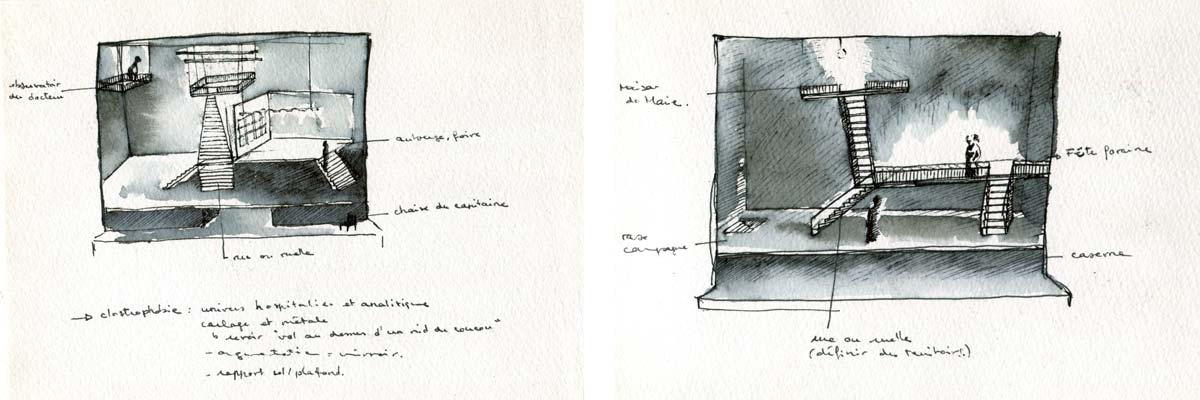 observatoir
du docteur
auberge, foire
chaise du capitaine
rue ou ruelle
→ claustrophobie : univers hospitalier et analitique
carlage et métale
↳ revoir "vol au dessus d'un nid de coucou"
- argumentation = miroir.
- rapport sol/plafond.
Maison
de Marie.
Fête foraine
rase
campagne
caserne
rue ou ruelle
(définir des territoires)